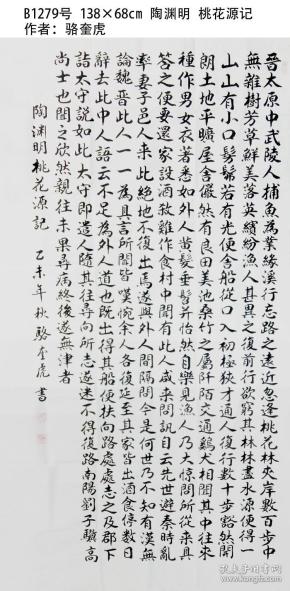 B1279号 138×68cm 陶渊明 桃花源记
作者：骆奎虎
晉太原中武陵人捕魚為業緣溪行忘路之遠近忽逢桃花林夾岸數百步中
無雜樹芳草鮮美落英繽紛漁人甚異之復前行欲窮其林林盡水源便得一
山山有小口髣髴若有光便舍船從口入初極狹才通人復行數十步豁然開
朗土地平曠屋舍儼然有良田美池桑竹之屬阡陌交通雞犬相聞其中往來
種作男女衣著悉如外人黃髮垂髫并怡然自樂見漁人乃大驚問所從來具
答之便要還家設酒殺雞作食村中聞有此人咸來問訊自云先世避秦時亂
率妻子邑人來此絕地不復出焉遂與外人間隔問今是何世乃不知有漢無
論魏晉此人一一為具言所聞皆嘆惋余人各復延至其家皆出酒食停數日
辭去此中人語云不足為外人道也既出得其船便扶向路處處志之及郡下
詣太守說如此太守即遣人隨其往尋向所志遂迷不得復路南陽劉子驥高
尚士也聞之欣然親往未果尋病終後遂無津者
陶淵明桃花源記 乙未年秋駱奎虎書